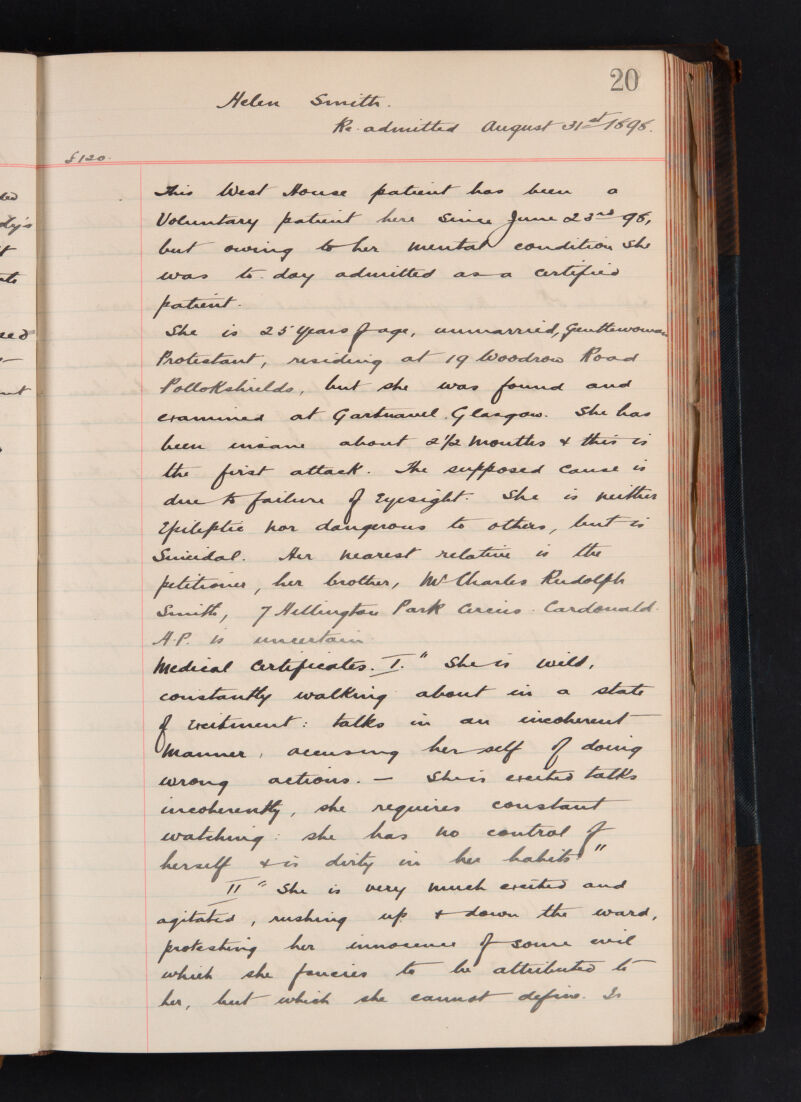 20
Helen Smith.
Re-admitted August 31st 1898.
£120.
This West House patient has been a
Voluntary patient here since June 23rd 98,
but owing to her mental condition she
was to-day admitted as a certified
patient.
She is 25 years of age, unmarried, Gentlewoman
Protestant, residing at 19 Woodrow Road
Pollokshields, but she was found and
examined at Gartnavel, Glasgow. She has
been insane about 2½ months & this is
the first attack. The supposed cause is
due to failure of Eyesight. She is neither
Epileptic nor dangerous to others, but is
Suicidal. Her nearest relative is the
petitioner, her brother, Mr Charles Rudolph
Smith, 7 Hillington Park Circus. Cardonald.
H.P. is uncertain.
Medical Certificates. I. "She is wild,
constantly walking about in a state
of excitement: talks in an incoherent
manner, accusing herself of doing
wrong actions. — She is excited talks
incoherently, she requires constant
watching: she has no control of
herself & is dirty in her habits"
II "She is very much excited and
agitated, rushing up & down the ward,
protesting her innocence of some evil
which she fancies to be attributed to
her, but which she cannot define. Is